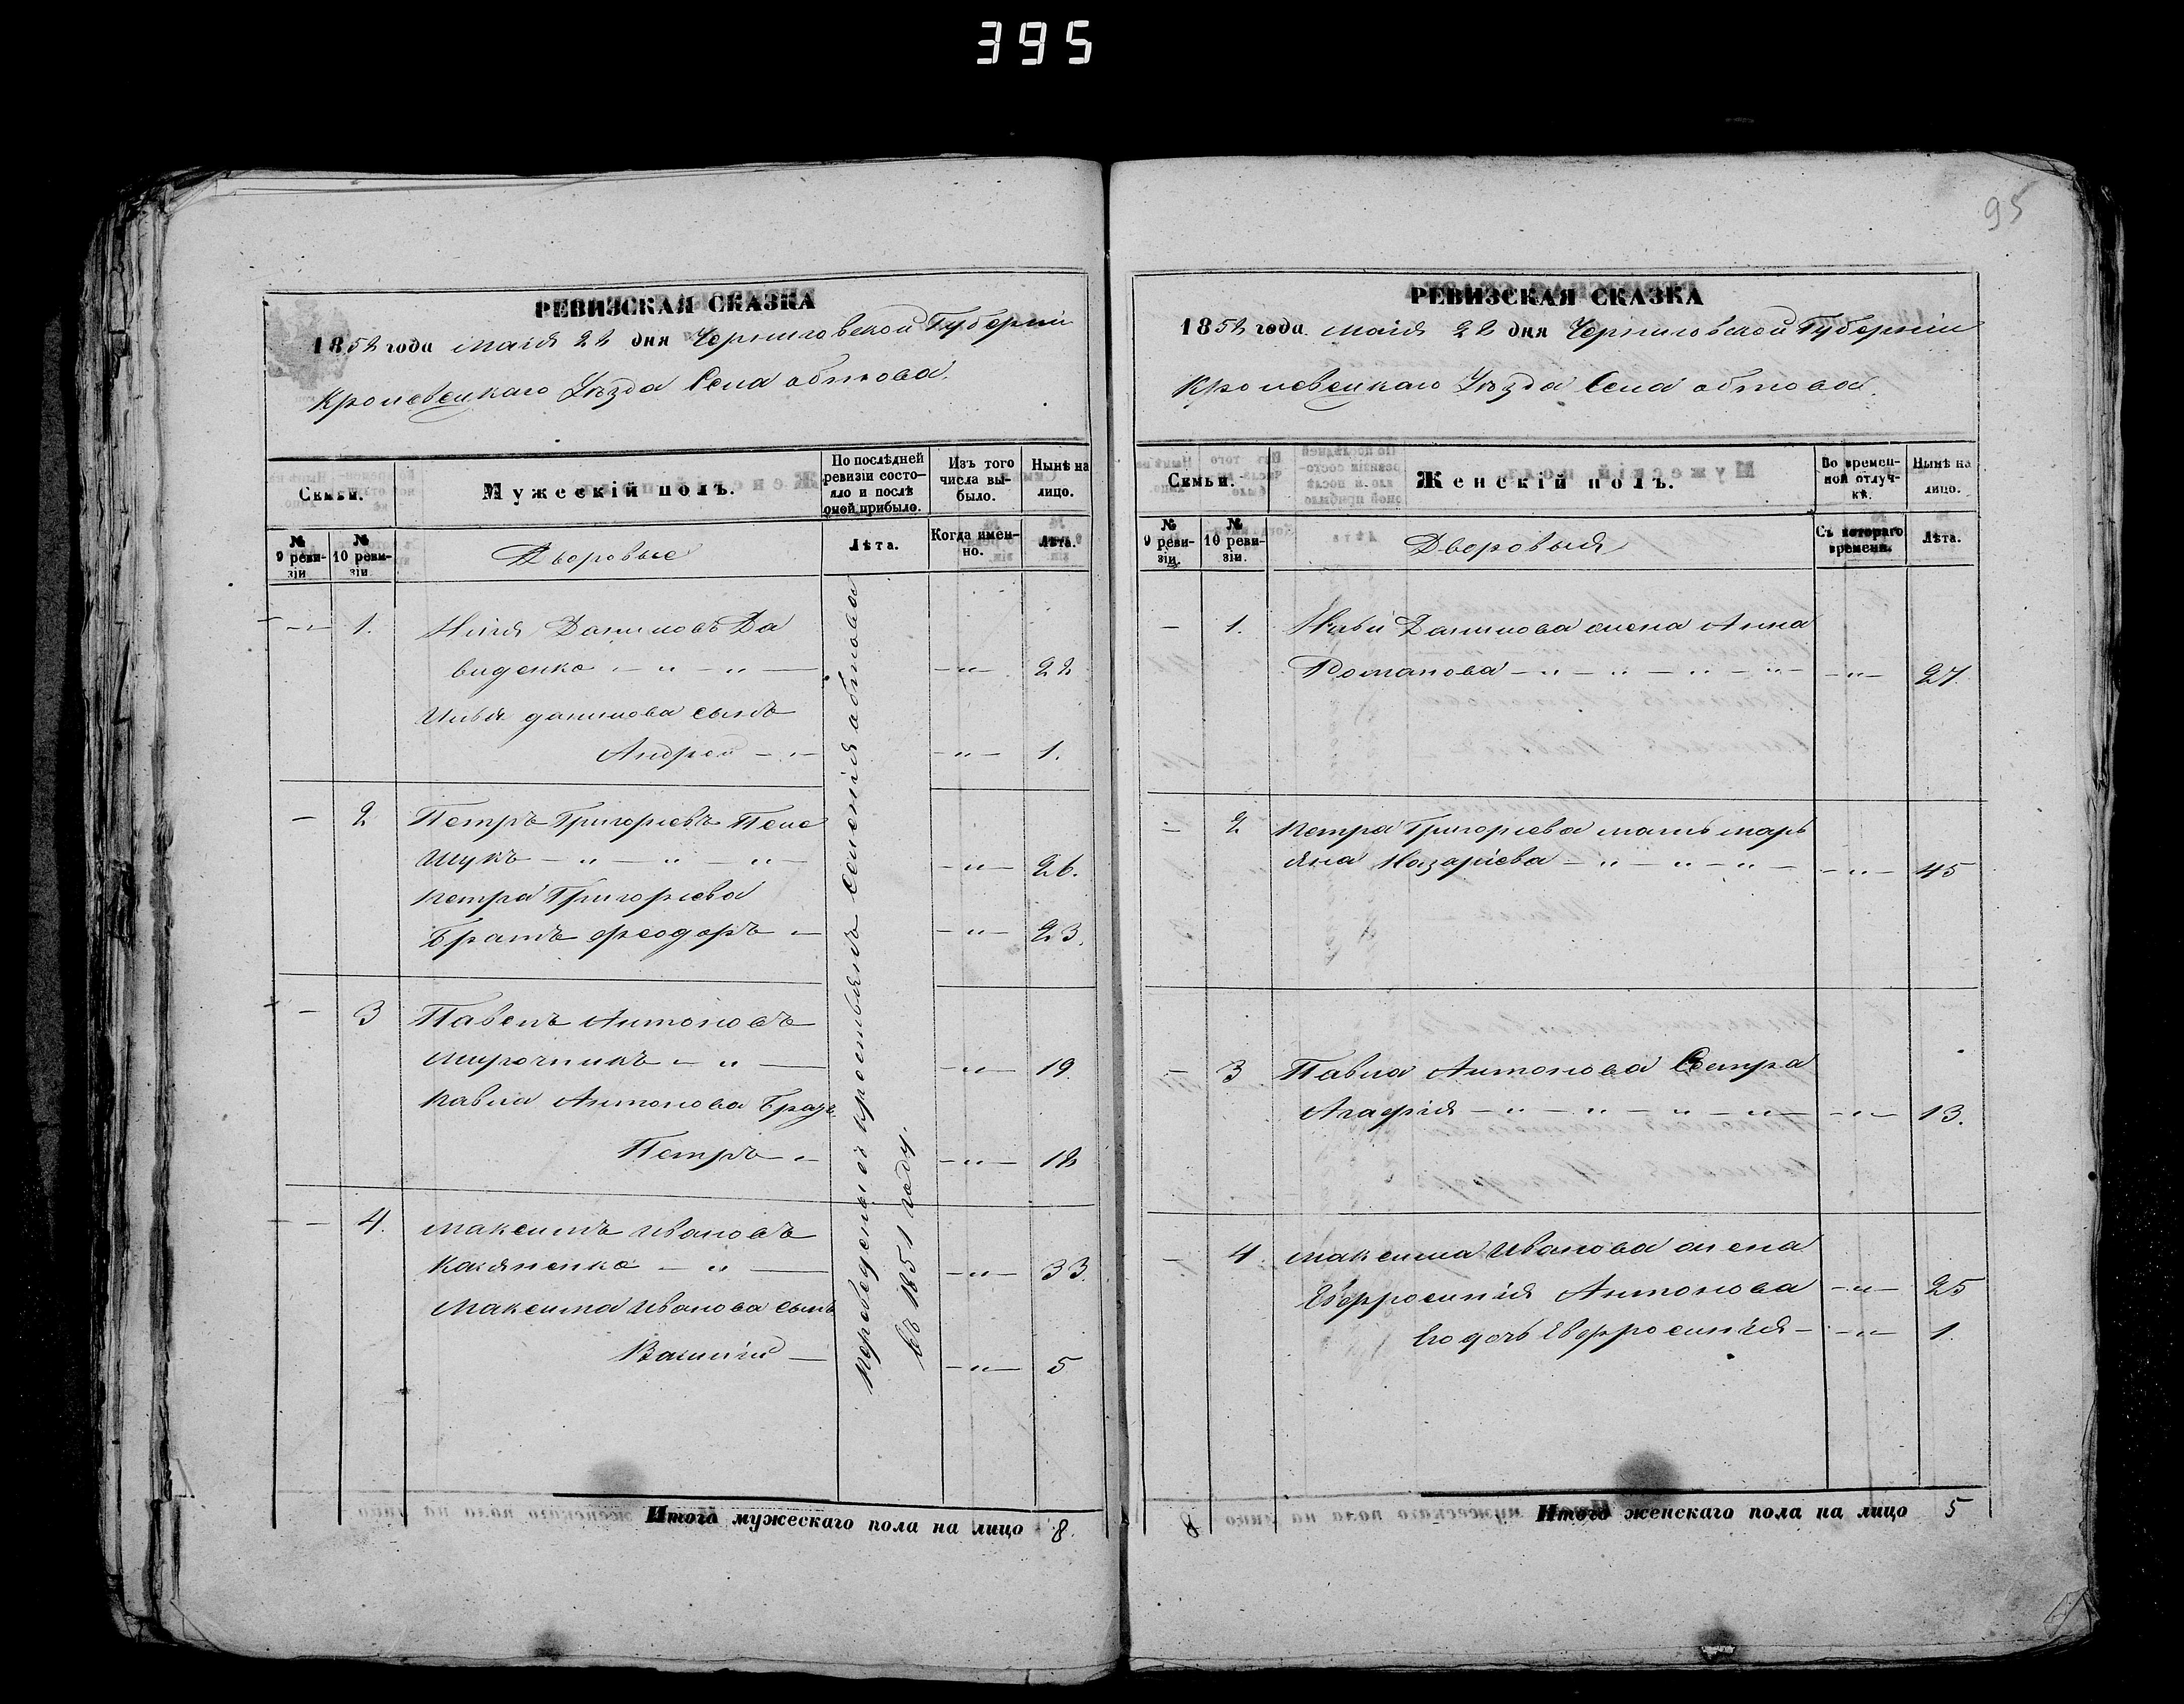 395
95
РЕВИЗСКАЯ СКАЗКА
1858 года маія 22 дня Черниговской Губерніи
Кролевецкаго Уѣзда Села обтова.
Семьи.
Мужескій полъ.
По послѣдней ревизіи состояло и послѣ оной прибыло.
Изъ того числа выбыло.
Нынѣ на лицо.
№ 9 ревизіи
№ 10 ревизіи.
Дворовые
Лѣта.
Когда именно.
Лѣта.
— 1. Илія Даниловъ Да
виденко — „ — „ — — „ — 22
Ильи данилова сынъ
Андрей — „ — — „ — 1.
— 2 Петръ Григорьевъ Пеле
шукъ — „ — „ — „ — — „ — 26.
петра Григорьева
Братъ феодоръ „ — — „ — 23.
— 3 Павелъ Антоновъ
мирочникъ — „ — — „ — 19.
павла Антонова Братъ
Петръ — „ — „ — 12
— 4. максимъ ивановъ
— „ — — „ — 33.
Максима иванова сынъ
Василій — — „ — 5
переведены съ крестьянъ селенія обтова
въ 1851 году.
Итого мужескаго пола на лицо 8.
РЕВИЗСКАЯ СКАЗКА
1858 года маія 22 дня Черниговской Губерніи
Кролевецкаго Уѣзда Села обтова.
Семьи.
Женскій полъ.
Во временной отлучкѣ.
Нынѣ на лицо.
№ 9 ревизіи.
№ 10 ревизіи.
Дворовыя
Съ котораго времени.
Лѣта.
— 1. Ильи Данилова жена Анна
Романова — „ — „ — „ — „ — — „ — 27.
— 2 петра Григорьева мать марь
яна Назаріева — „ — „ — „ — — „ — 45
— 3 Павла Антонова Сестра
Агафія — „ — „ — „ — „ — — „ — 13.
— 4. максима Иванова жена
Евфросинія Антонова — „ — 25
Его дочь Евфросинія — — „ — 1.
Итого женскаго пола на лицо 5